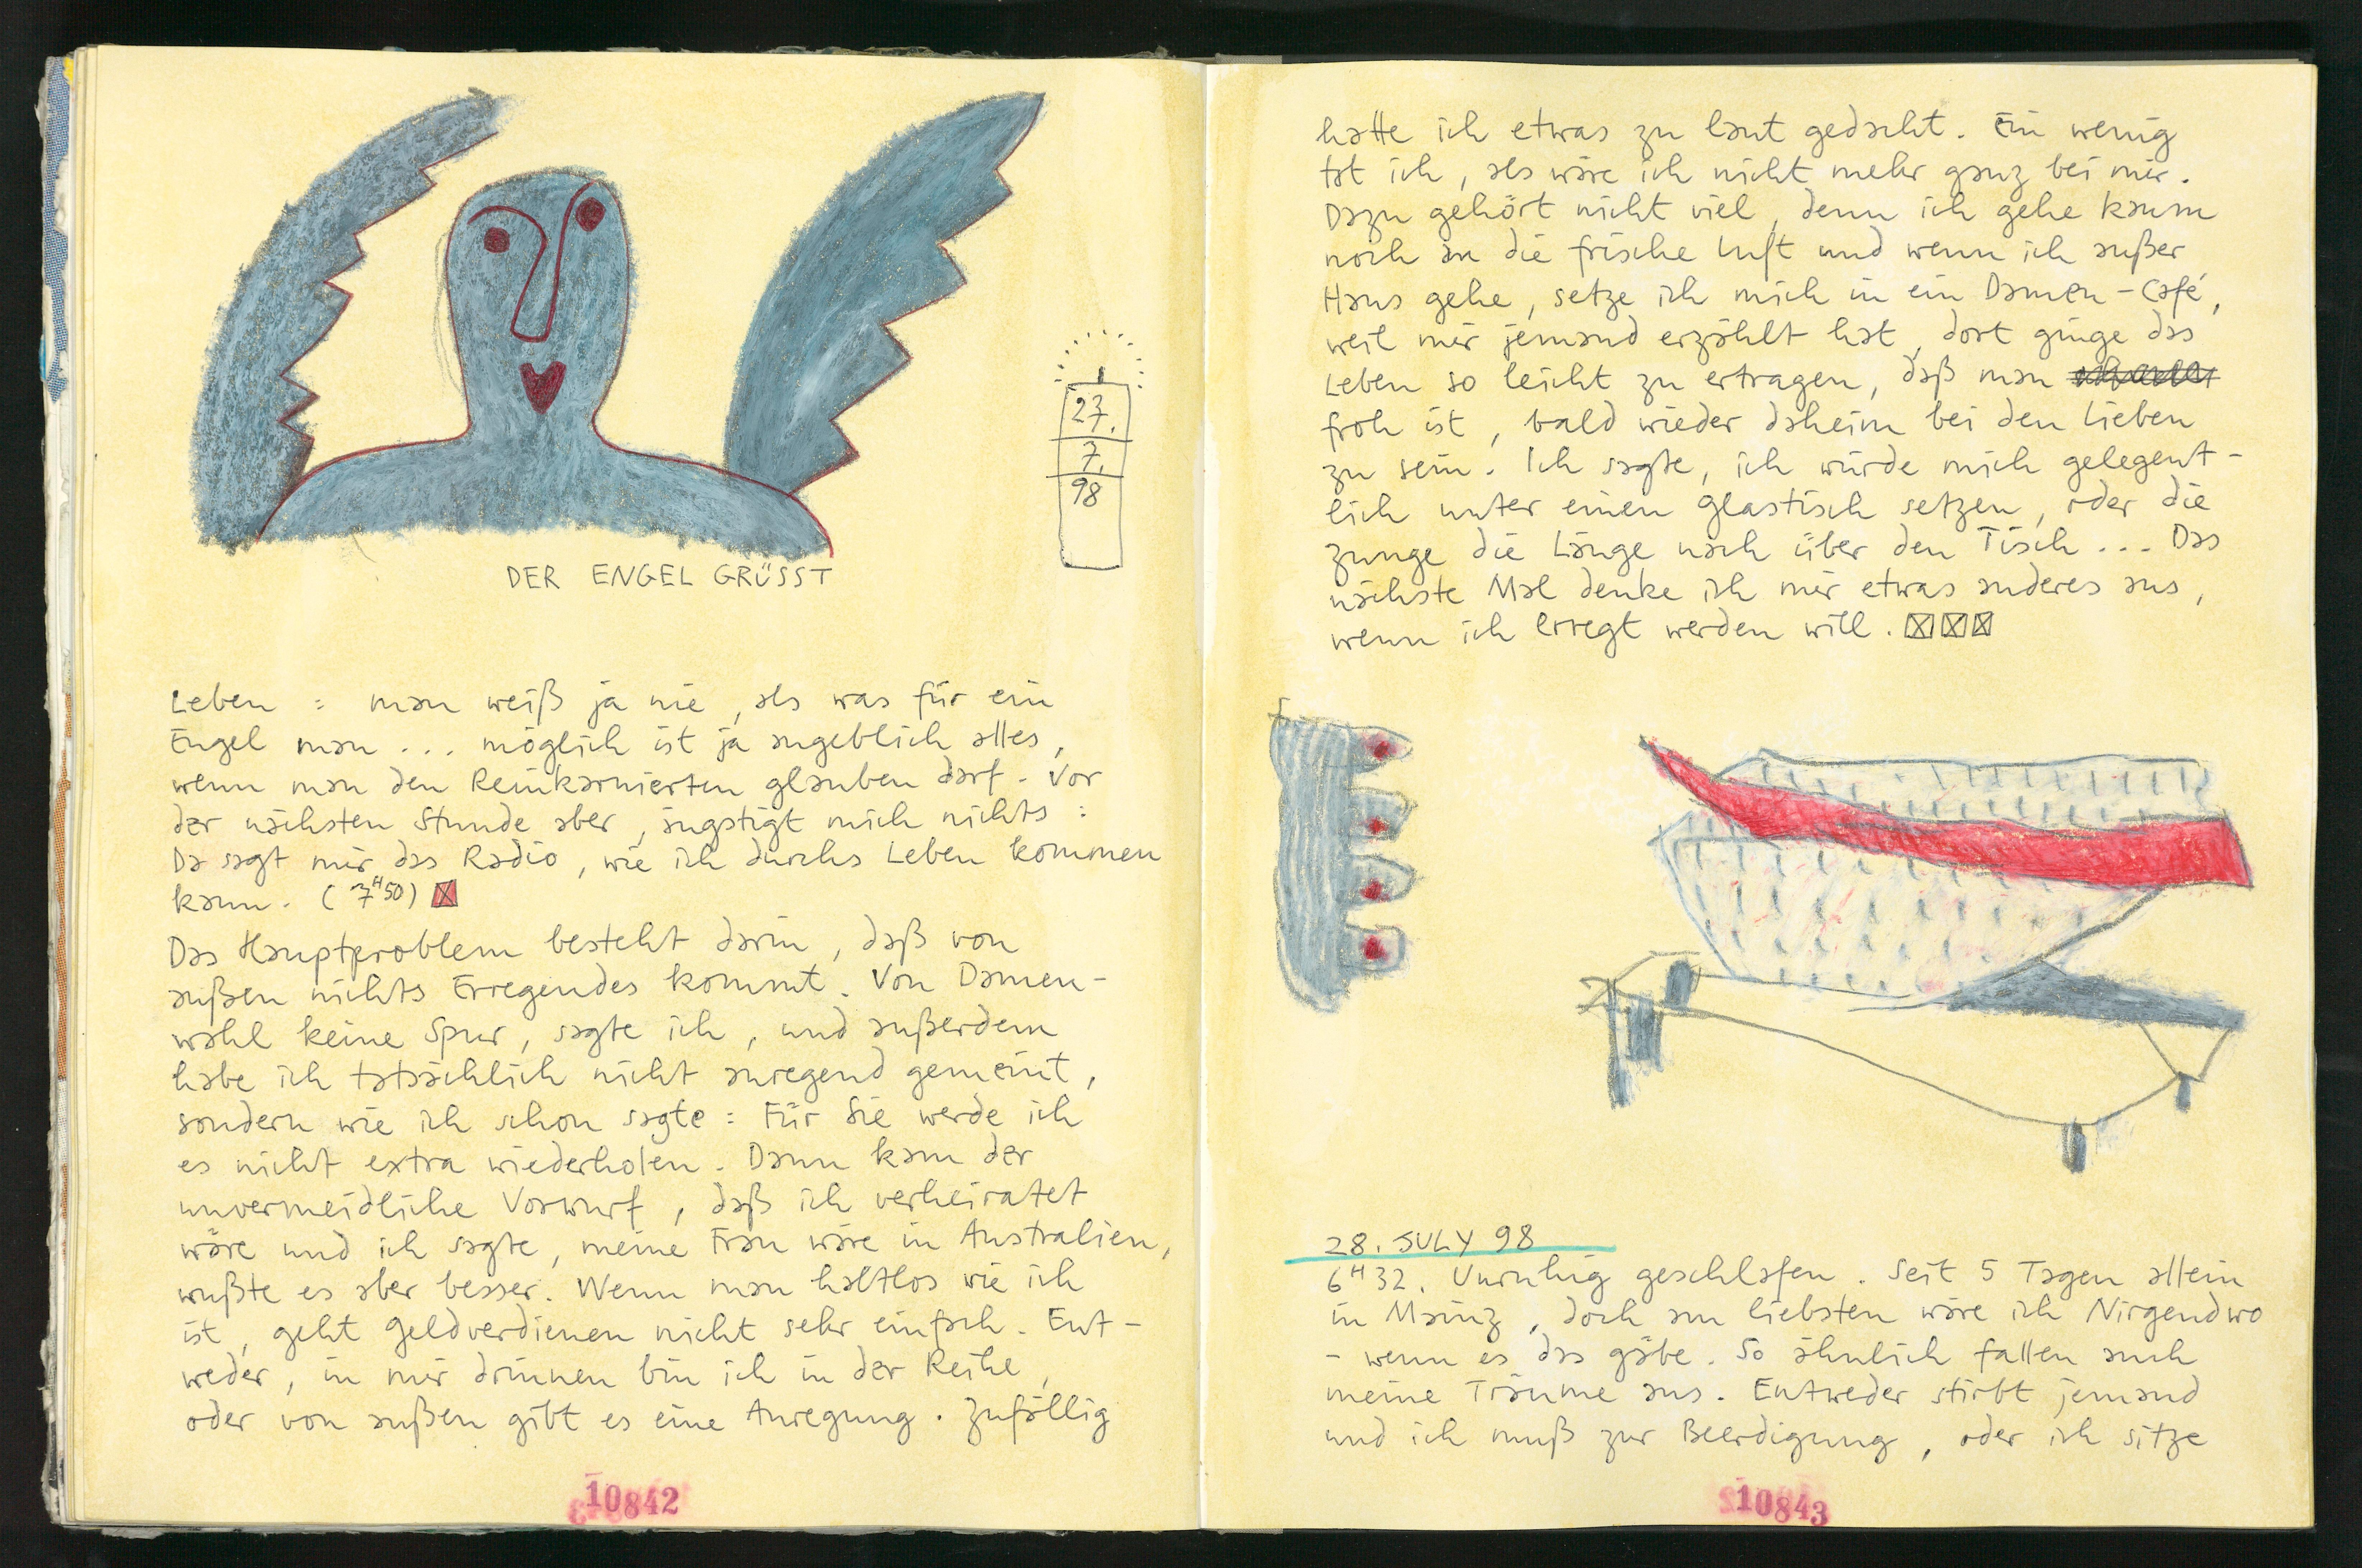 DER ENGEL GRÜSST
27.
7.
98
Leben : man weiß ja nie, als was für ein
Engel man ... möglich ist ja angeblich alles,
wenn man den Reinkarnierten glauben darf. Vor
der nächsten Stunde aber, ängstigt mich nichts :
Da sagt mir das Radio, wie ich durchs Leben kommen
kann. (7H50)
Das Hauptproblem besteht darin, daß von
außen nichts Erregendes kommt. Von Damen-
wahl keine Spur, sagte ich, und außerdem
habe ich tatsächlich nicht anregend gemeint,
sondern wie ich schon sagte : Für Sie werde ich
es nicht extra wiederholen. Dann kam der
unvermeidliche Vorwurf, daß ich verheiratet
wäre und ich sagte, meine Frau wäre in Australien,
wußte es aber besser. Wenn man haltlos wie ich
ist, geht Geldverdienen nicht sehr einfach. Ent-
weder, in mir drinnen bin ich in der Reihe,
oder von außen gibt es eine Anregung. Zufällig
10842
hatte ich etwas zu laut gedacht. Ein wenig
tat ich, als wäre ich nicht mehr ganz bei mir.
Dazu gehört nicht viel, denn ich gehe kaum
noch an die frische Luft und wenn ich außer
Haus gehe, setze ich mich in ein Damen-Café,
weil mir jemand erzählt hat, dort ginge das
Leben so leicht zu ertragen, daß man
froh ist, bald wieder daheim bei den Lieben
zu sein. Ich sagte, ich würde mich gelegent-
lich unter einen Glastisch setzen, oder die
Zunge die Länge nach über den Tisch ... Das
nächste Mal denke ich mir etwas anderes aus,
wenn ich erregt werden will.
28. JULY 98
6H32. Unruhig geschlafen. Seit 5 Tagen allein
in Mainz, doch am liebsten wäre ich Nirgendwo
- wenn es das gäbe. So ähnlich fallen auch
meine Träume aus. Entweder stirbt jemand
und ich muß zur Beerdigung, oder ich sitze
10843